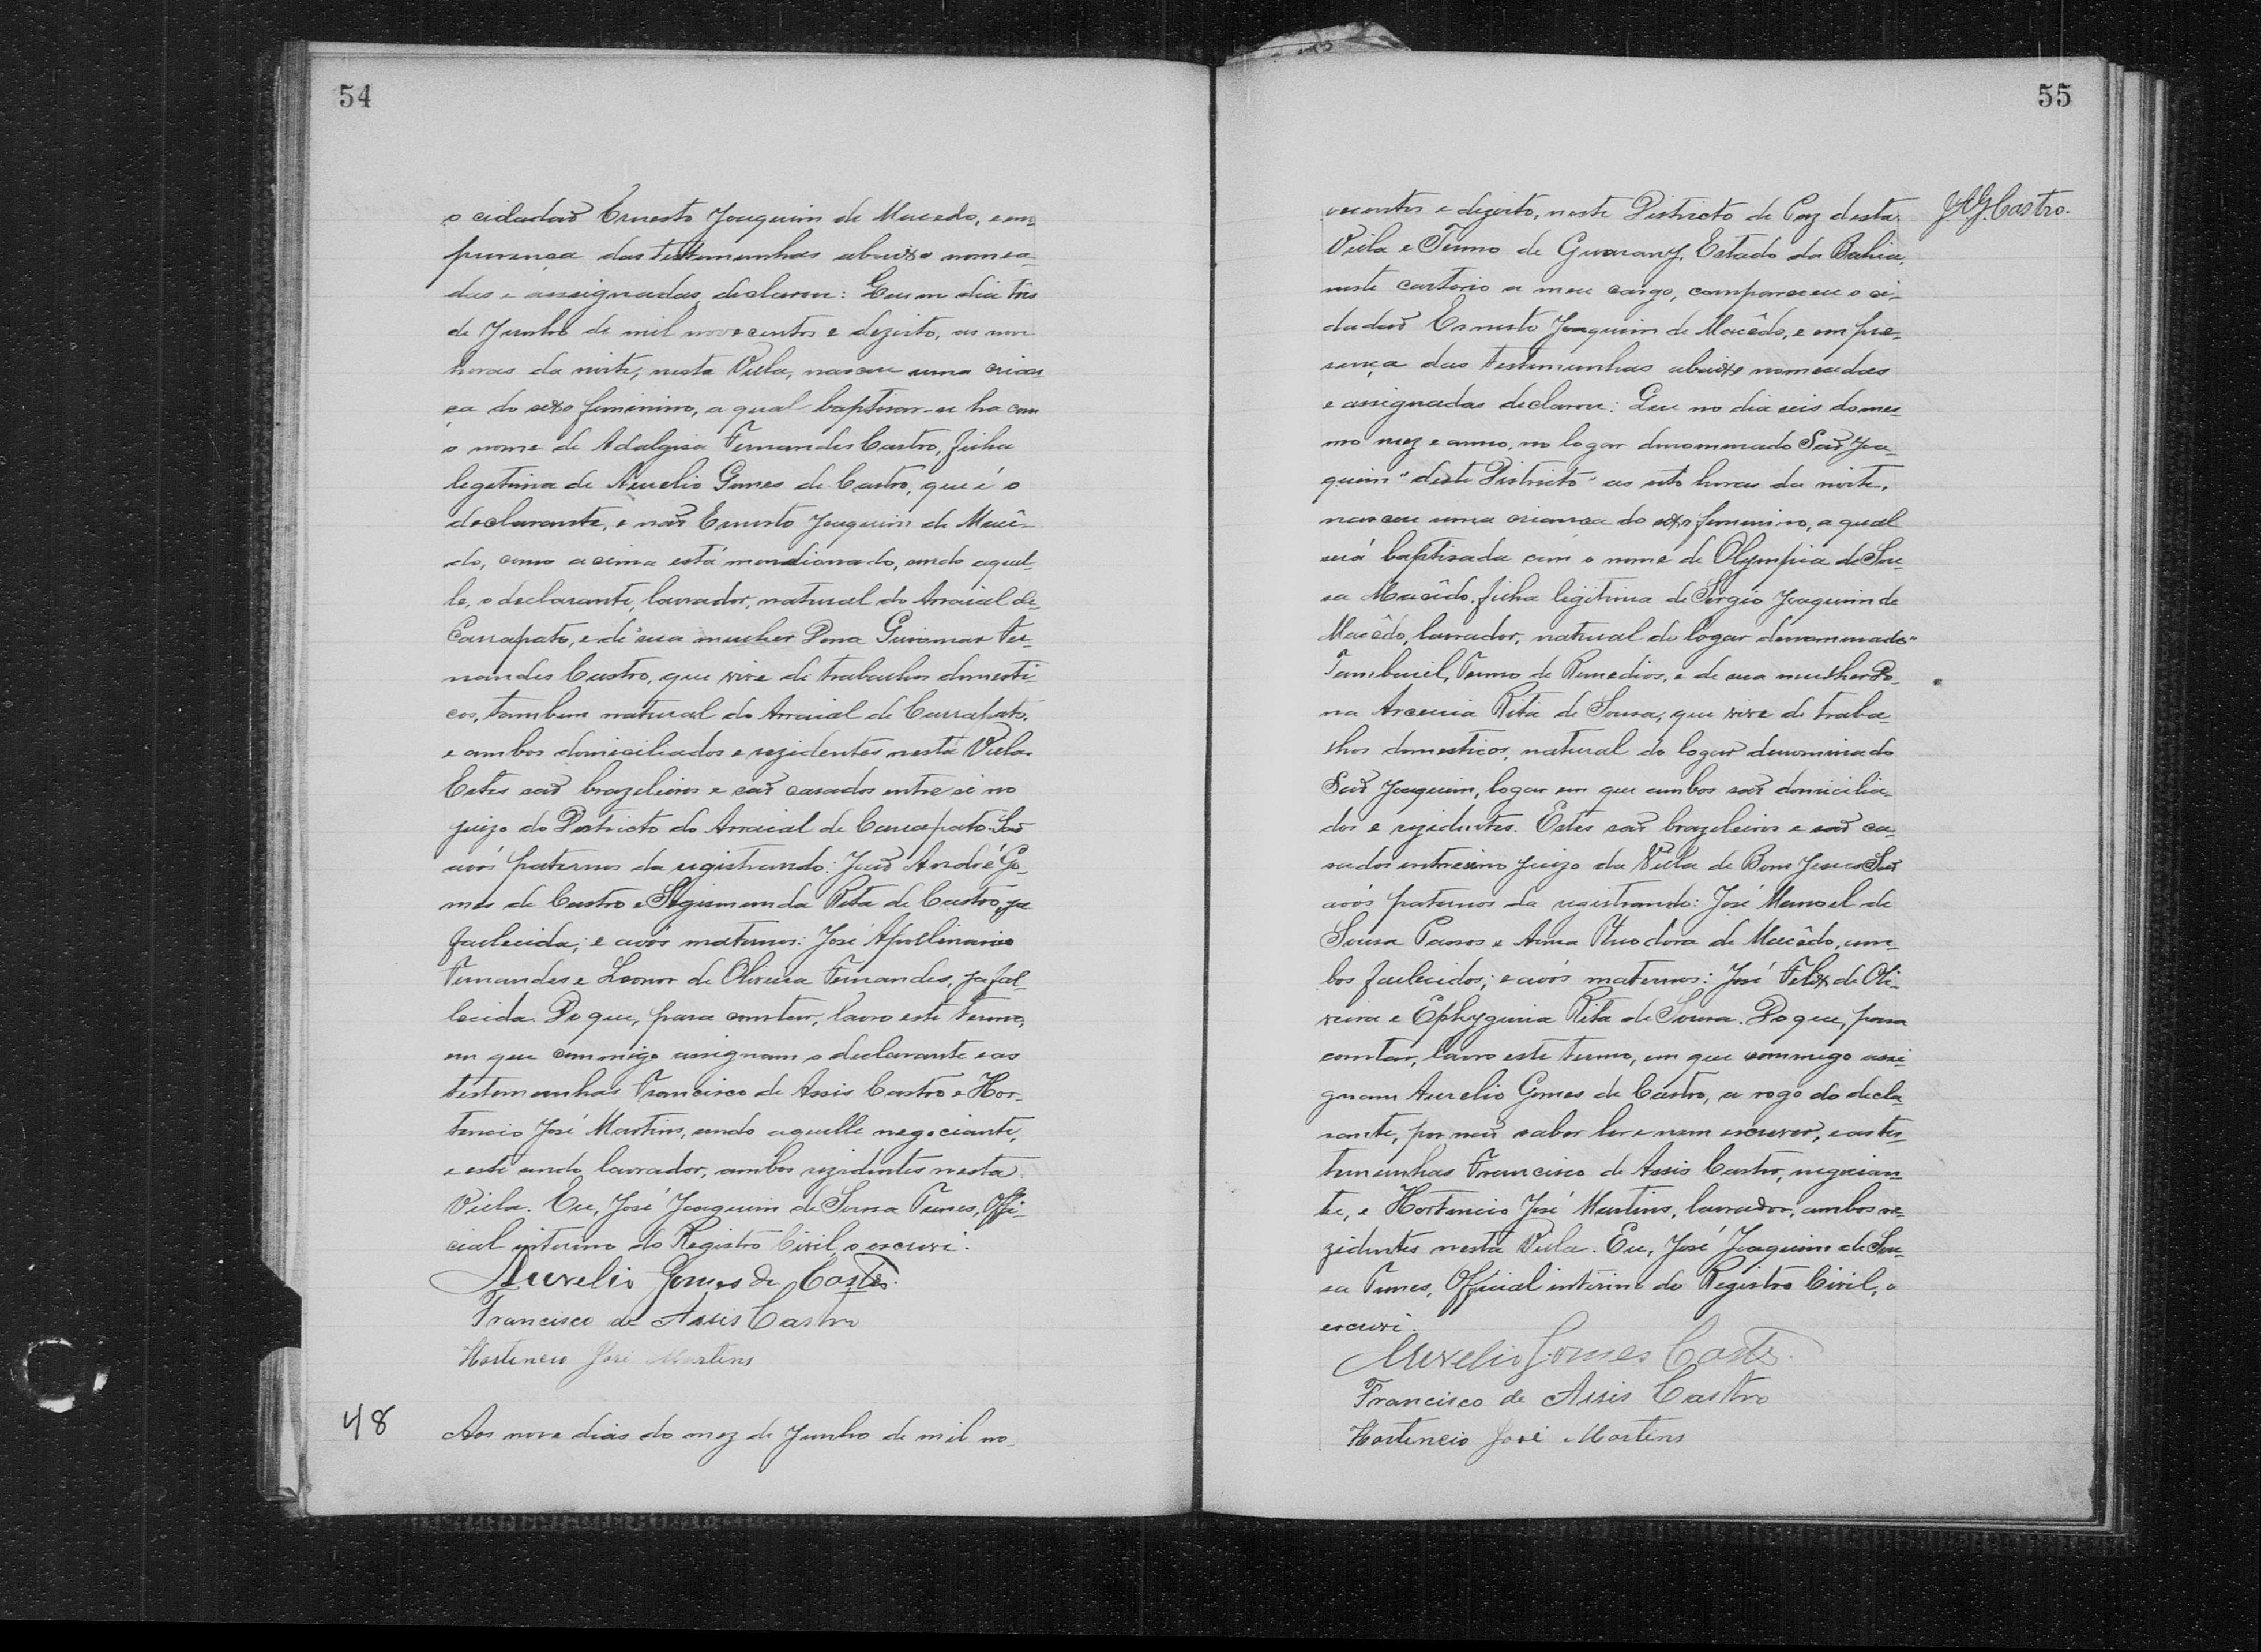 54
o cidadão Ernesto Joaquim de Macedo, e em
presença das testemunhas abaixo nomea-
das e assignadas, declarou: Que no dia três
de Junho de mil novecentos e dezoito, as nove
horas da noite, nesta Villa, nasceu uma crian-
ça do sexo feminino, a qual baptisar-se ha com
o nome de Adalgisa Fernandes Castro, filha
legitima de Aurelio Gomes de Castro, que é o
declarante, e não Ernesto Joaquim de Macê-
do, como acima está mendionado, sendo aquel-
le, o declarante, lavrador, natural do Arraial de
Carrapato, e de sua mulher Dona Guiomar Fer-
nandes Castro, que vive de trabalhos domesti-
cos, tambem natural do Arraial de Carrapato,
e ambos domiciliados e rezidentes nesta Villa.
Estes são brazileiros e são casados entre si no
juizo do Districto do Arraial de Carrapato. São
avós paternos da registrando: João André Go-
mes de Castro e Sigismunda Rita de Castro, ja
fallecida; e avós maternos: José Apollinario
Fernandes e Leonor de Oliveira Fernandes, ja fal-
lecida. Do que, para constar, lavro este termo,
em que commigo assignam o declarante e as
testemunhas Francisco de Assis Castro e Hor-
tencio José Martins, sendo aquelle negociante,
e este sendo lavrador, ambos rezidentes nesta
Villa. Eu, José Joaquim de Sousa Tunes, Offi-
cial interino do Registro Civil, o escrevi.
Aurelio Gomes de Castro.
Francisco de Assis Castro
Hortencio José Martins
48 Aos nove dias do mez de Junho de mil no-
55
J.A.G. Castro.
vecentos e dezoito, neste Districto de Paz desta
Villa e Termo de Guarany, Estado da Bahia,
neste cartorio a meu cargo, compareceu o ci-
dadão Ernesto Joaquim de Macêdo, e em pre-
sença das testemunhas abaixo nomeadas
e assignadas declarou: Que no dia seis do mes-
mo mez e anno, no logar denominado São Joa-
quim" deste Districto - as oito horas da noite,
nasceu uma criança do sexo feminino, a qual
será baptisada com o nome de Olympia de Sou-
sa Macêdo, filha legitima de Sergio Joaquim de
Macêdo, lavrador, natural do logar denominado"
Tamburil, Termo de Remedios, e de sua mulher Do-
na Arcenia Rita de Sousa, que vive de traba-
lhos domesticos, natural do logar denominado
São Joaquim, logar em que ambos são domicilia-
dos e rezidentes. Estes são brazileiros e são ca-
sados entre si no juizo da Villa de Bom Jesus. São
avós paternos da registrando: José Manoel de
Sousa Passos e Anna Theodora de Macêdo, am-
bos fallecidos; e avós maternos: José Felix de Oli-
veira e Ephygenia Rita de Sousa. Do que, para
constar, lavro este termo, em que commigo assi-
gnam Aurelio Gomes de Castro, a rogo do decla-
rante, por não saber ler e nem escrever, e as tes-
temunhas Francisco de Assis Castro, negocian-
te, e Hortencio José Martins, lavrador, ambos re-
zidentes nesta Villa. Eu, José Joaquim de Sou-
sa Tunes, Official interino do Registro Civil, o
escrevi.
Aurelio Gomes Castro.
Francisco de Assis Castro
Hortencio José Martins